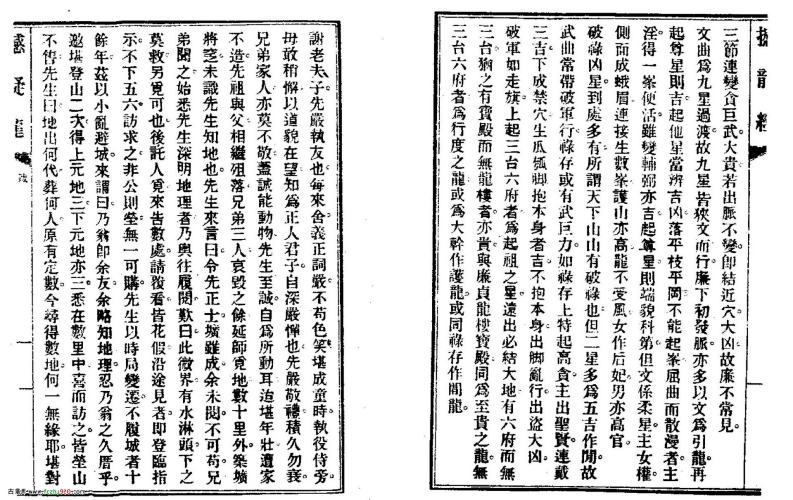 撼龍經
三節連變貪巨武大貴若出脈不變即結近穴大凶故廉不常見
文曲爲九星過渡故九星皆狹文而行廉下初發脈亦多以文爲引龍再
起尊星則吉起他星當辨吉凶落平枝平岡不能起峯屈曲而散漫者主
淫得一峯便活雖變輔弼亦吉起尊星則端貌科第但文係柔星主女權
側面成蛾眉連接生數峯護山亦高龍不受風女作后妃男亦高官
破祿凶星到處多有所謂天下山山有破祿也但二星多爲五吉作閒故
武曲常帶破軍行祿存或有武巨力如祿存上特起高貪主出聖賢連戴
三吉下成禁穴生瓜瓠脚抱本身者吉不抱本身出脚亂行出盜大凶
破軍如走旗上起三台六府者爲起祖之星遠出必結大地有六府而無
三台猶之有寶殿而無龍樓者亦貴與廉貞龍樓寶殿同爲至貴之龍無
三台六府者爲行度之龍或爲大幹作護龍或同祿存作閒龍
謝老夫子先嚴執友也每來舍義正詞嚴不苟色笑堪成童時執役侍旁
毋敢稍懈以道貌在望知爲正人君子自深嚴憚也先嚴敬禮積久勿衰
兄弟家人亦莫不敬蓋誠能動物先生至誠自爲所動耳迨堪年壯遭家
不造先祖與父相繼殂落兄弟三人哀毀之餘延師覓地數十里外築壙
將窆未識先生知地也先生來言曰令先正士壙雖成余未閱不可苟兄
弟聞之始悉先生深明地理者乃與往履閱歎曰此微界有水淋頭下之
莫救另覓可也後託人覓來告數處請復看皆花假沿途見者即登臨指
示不下五六訪求之非公則塋無一可購先生以時局變遷不履城者十
餘年茲以小亂避城來謂曰乃翁即余友余略知地理忍乃翁之久厝乎
邀堪登山二次得上元地三下元地亦三悉在數里中喜而訪之皆塋山
不售先生曰地出何代葬何人原有定數今尋得數地何一無緣耶堪對
疑龍